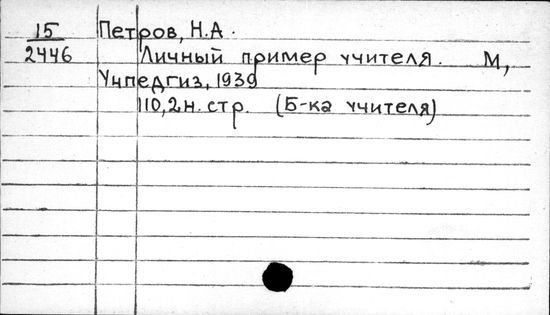 15 Петров, Н.А.
2446 Личный пример учителя. М,
Учпедгиз, 1939
110, 2 н. стр. (Б-ка учителя)